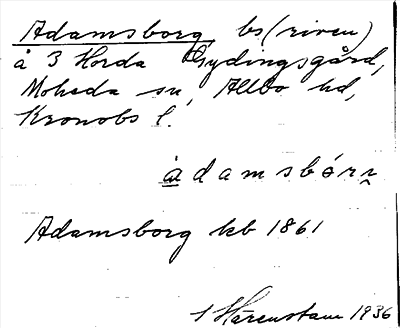 Adamsborg bs (riven)
å 3 Horda Gydingsgård,
Moheda sn, Allbo hd,
Kronobs l.
àdamsbórn̨
Adamsborg kb 1861
S Härenstam 1936